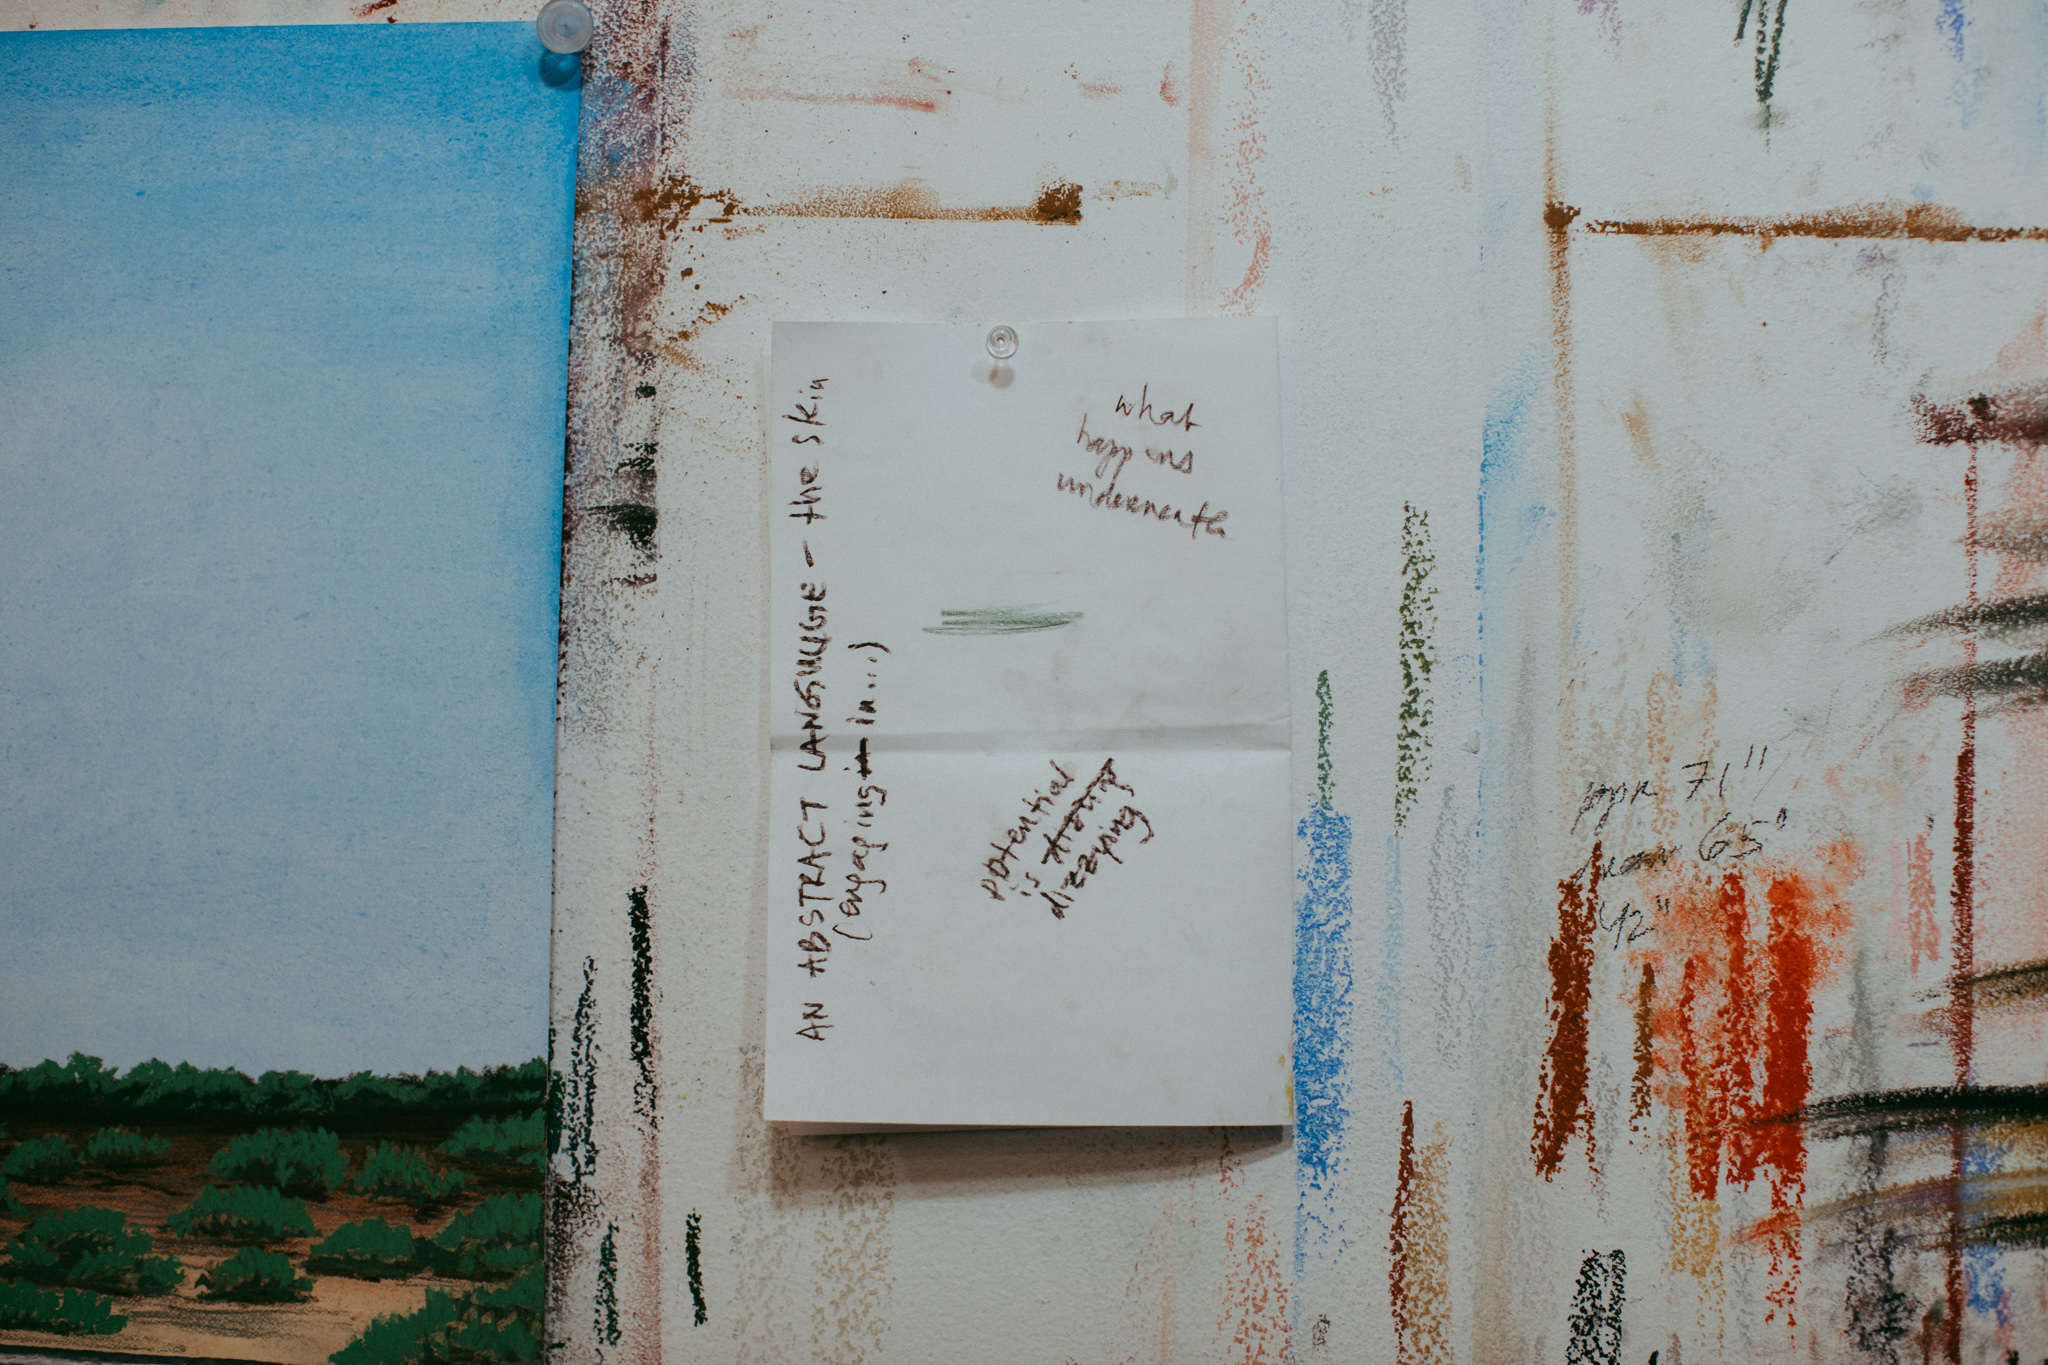 AN ABSTRACT LANGUAGE – the skin
(engaging in...)
what
happens
underneath
potential
is strange
dizzying
71"
65"
42"